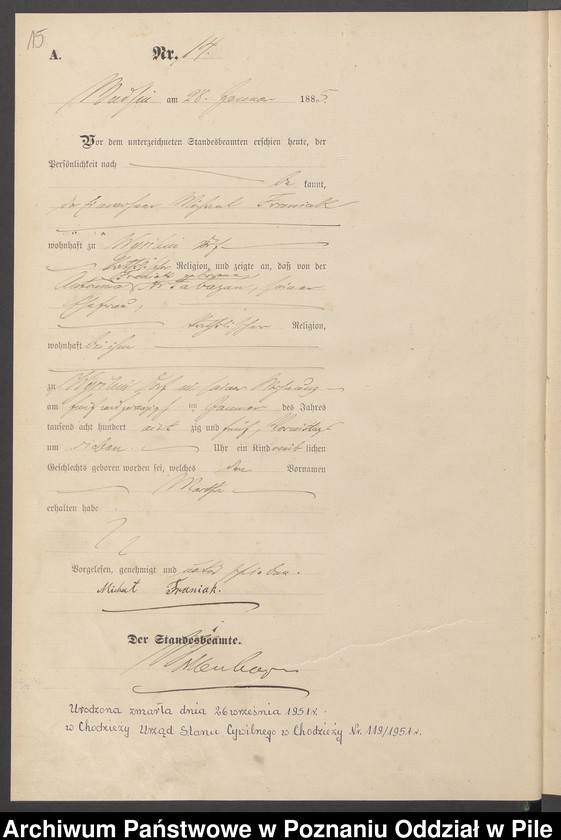 15
A. Nr. 14.
am 28. Januar 1885.
Vor dem unterzeichneten Standesbeamten erschien heute, der
Persönlichkeit nach
be kannt,
der Michael Franiak
wohnhaft zu
katholischer Religion, und zeigte an, daß von der
Franiak geborene
Antonina Tabazan, seiner
Ehefrau,
katholischer Religion,
wohnhaft bei ihm
zu Dorf in seiner Wohnung
am fünfundzwanzigsten ten Januar des Jahres
tausend acht hundert acht zig und fünf, Vormittags
um sieben Uhr ein Kind weib lichen
Geschlechts geboren worden sei, welches den Vornamen
Martha
erhalten habe
Vorgelesen, genehmigt und unterschrieben.
Michał Franiak.
Der Standesbeamte.
Urodzona zmarła dnia 26 września 1951 r.
w Chodzieży Urząd Stanu Cywilnego w Chodzieży Nr. 119/1951 r.
Archiwum Państwowe w Poznaniu Oddział w Pile